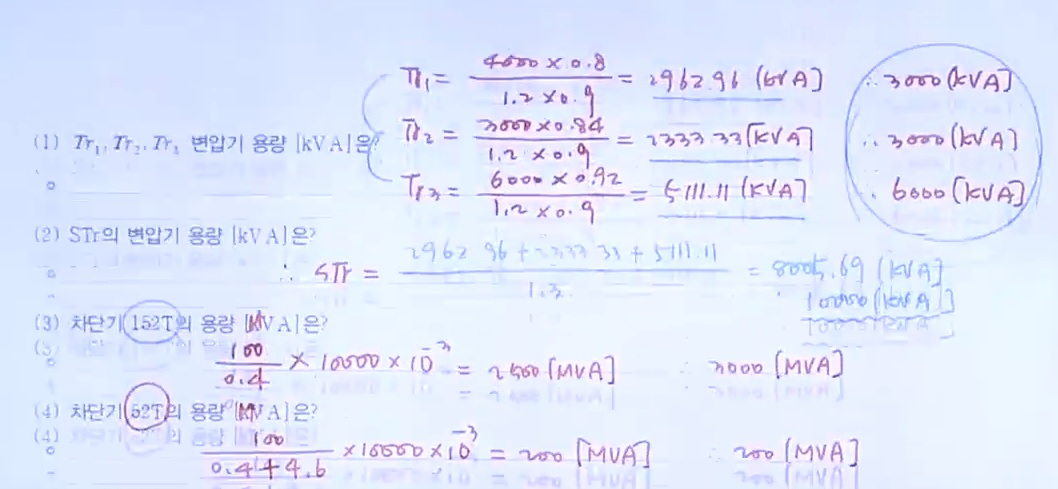 Tr₁ = 4000 × 0.8 / 1.2 × 0.9 = 2962.96 (kVA) ∴ 3000 (kVA)
(1) Tr₁, Tr₂, Tr₃ 변압기 용량 [kVA]은?
Tr₂ = 3000 × 0.84 / 1.2 × 0.9 = 2333.33 [kVA] ∴ 3000 (kVA)
Tr₃ = 6000 × 0.92 / 1.2 × 0.9 = 5111.11 (kVA) ∴ 6000 [kVA]
(2) STr의 변압기 용량 [kVA]은?
∴ STr = 2962.96 + 2333.33 + 5111.11 / 1.3 = 8005.69 (kVA)
10000 (kVA)
(3) 차단기 152T의 용량 [MVA]은?
100 / 0.4 × 10000 × 10⁻³ = 2500 [MVA] ∴ 3000 [MVA]
(4) 차단기 52T의 용량 [MVA]은?
100 / 0.4 + 4.6 × 10000 × 10⁻³ = 200 [MVA] ∴ 200 [MVA]